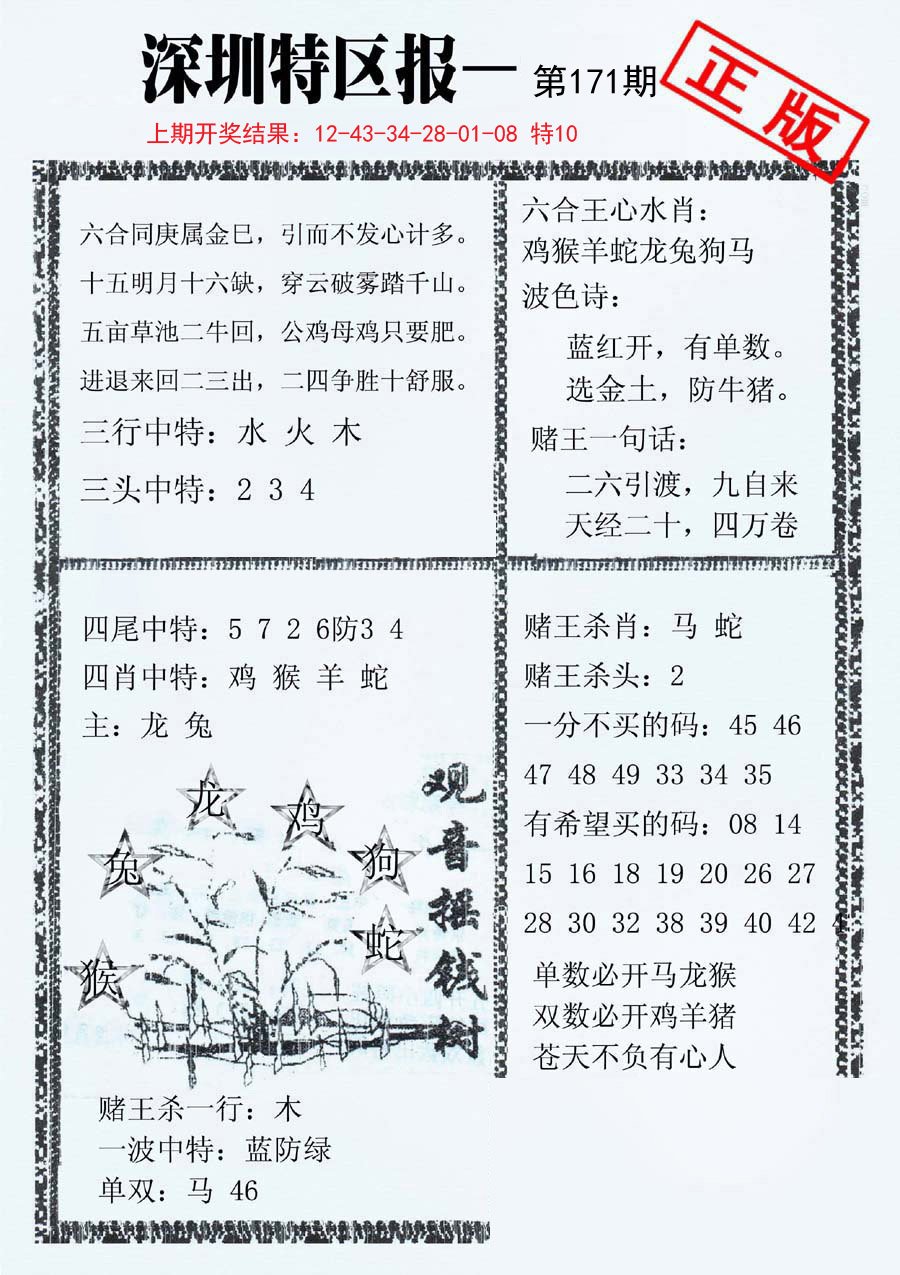 深圳特区报一 第171期
正版
上期开奖结果：12-43-34-28-01-08 特10
六合同庚属金巳，引而不发心计多。
十五明月十六缺，穿云破雾踏千山。
五亩草池二牛回，公鸡母鸡只要肥。
进退来回二三出，二四争胜十舒服。
三行中特：水 火 木
三头中特：2 3 4
六合王心水肖：
鸡猴羊蛇龙兔狗马
波色诗：
蓝红开，有单数。
选金土，防牛猪。
赌王一句话：
二六引渡，九自来
天经二十，四万卷
四尾中特：5 7 2 6防3 4
四肖中特：鸡 猴 羊 蛇
主：龙 兔
猴
兔
龙
鸡
狗
蛇
观音摇钱树
赌王杀一行：木
一波中特：蓝防绿
单双：马 46
赌王杀肖：马 蛇
赌王杀头：2
一分不买的码：45 46
47 48 49 33 34 35
有希望买的码：08 14
15 16 18 19 20 26 27
28 30 32 38 39 40 42 4
单数必开马龙猴
双数必开鸡羊猪
苍天不负有心人